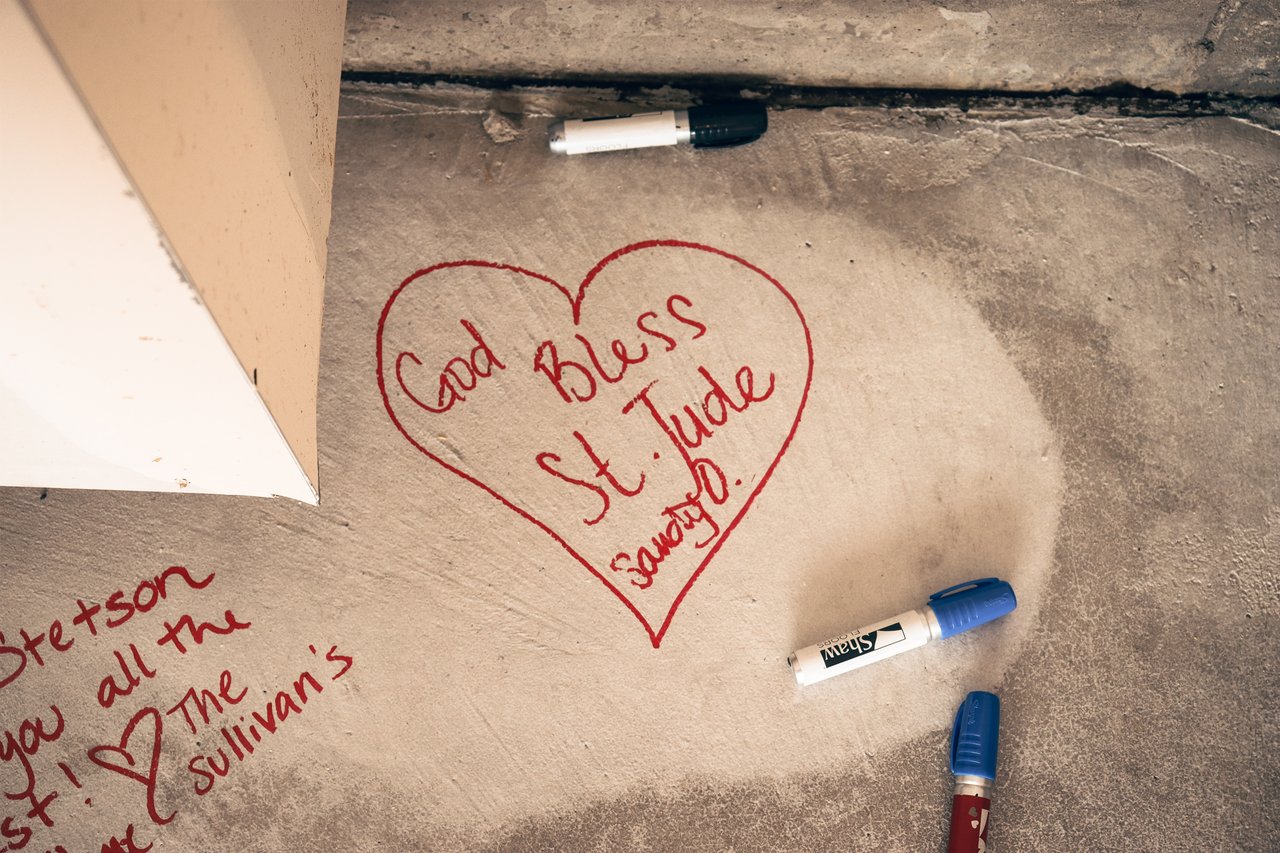 God Bless
St. Jude
Sandy O.
Stetson
you all the
st! The
sullivan's
Shaw
FLOORS
FLOORS